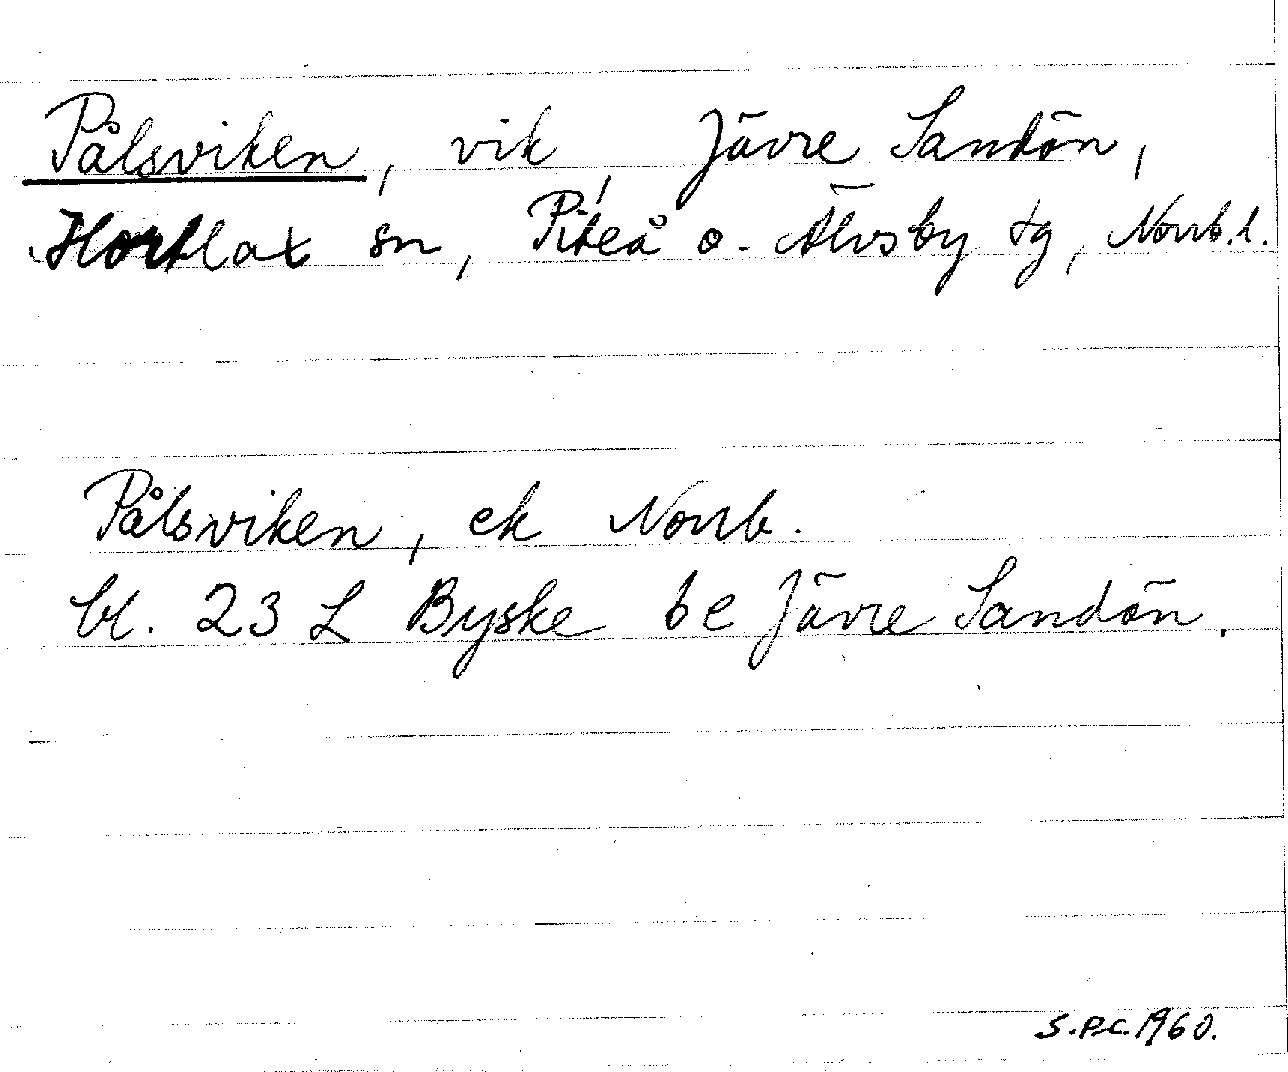 Pålsviken, vik, Jävre Sandön,
Hortlax sn, Piteå o. Älvsby tg, Norrb.l.
Pålsviken, ek Norrb.
bl. 23 L Byske be Jävre Sandön.
S.P.C. 1960.